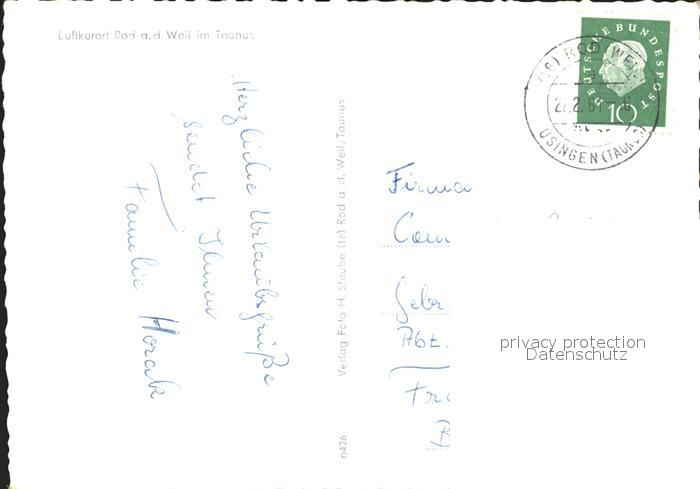 Luftkurort Rod a.d. Weil im Taunus
DEUTSCHE BUNDESPOST
10
(16) ROD WEIL
USINGEN (TAUNUS)
Herzliche Urlaubsgrüße
sendet Ihnen
Familie Horak
Verlag Foto H. Steube (16) Rod a. d. Weil/Taunus
n426
Firma
Com
Gebr
Abt.
privacy protection
Datenschutz